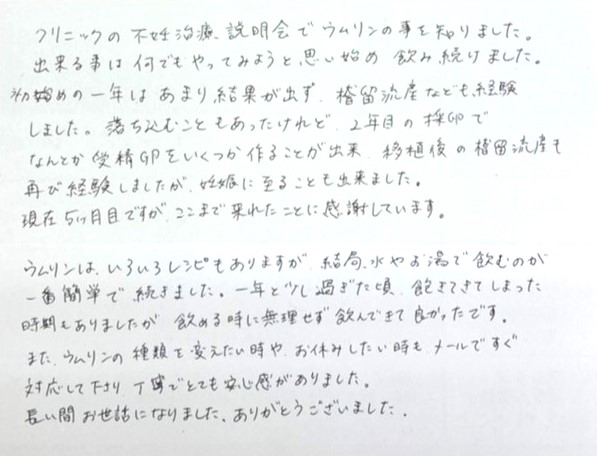 クリニックの不妊治療、説明会でウムリンの事を知りました。
出来る事は何でもやってみようと思い始め 飲み続けました。
初始めの一年は あまり結果が出ず、稽留流産なども経験
しました。落ち込むこともあったけれど、2年目の採卵で
なんとか受精卵をいくつか作ることが出来、移植後の稽留流産も
再び経験しましたが、妊娠に至ることも出来ました。
現在5ヶ月目ですが、ここまで来れたことに感謝しています。
ウムリンは、いろいろレシピもありますが、結局、水やお湯で飲むのが
一番簡単で続きました。一年と少し過ぎた頃、飽きてきてしまった
時期もありましたが 飲める時に無理せず飲んできて良かったです。
また、ウムリンの種類を変えたい時や、お休みしたい時も、メールですぐ
対応して下さり、丁寧でとても安心感がありました。
長い間お世話になりました、ありがとうございました。